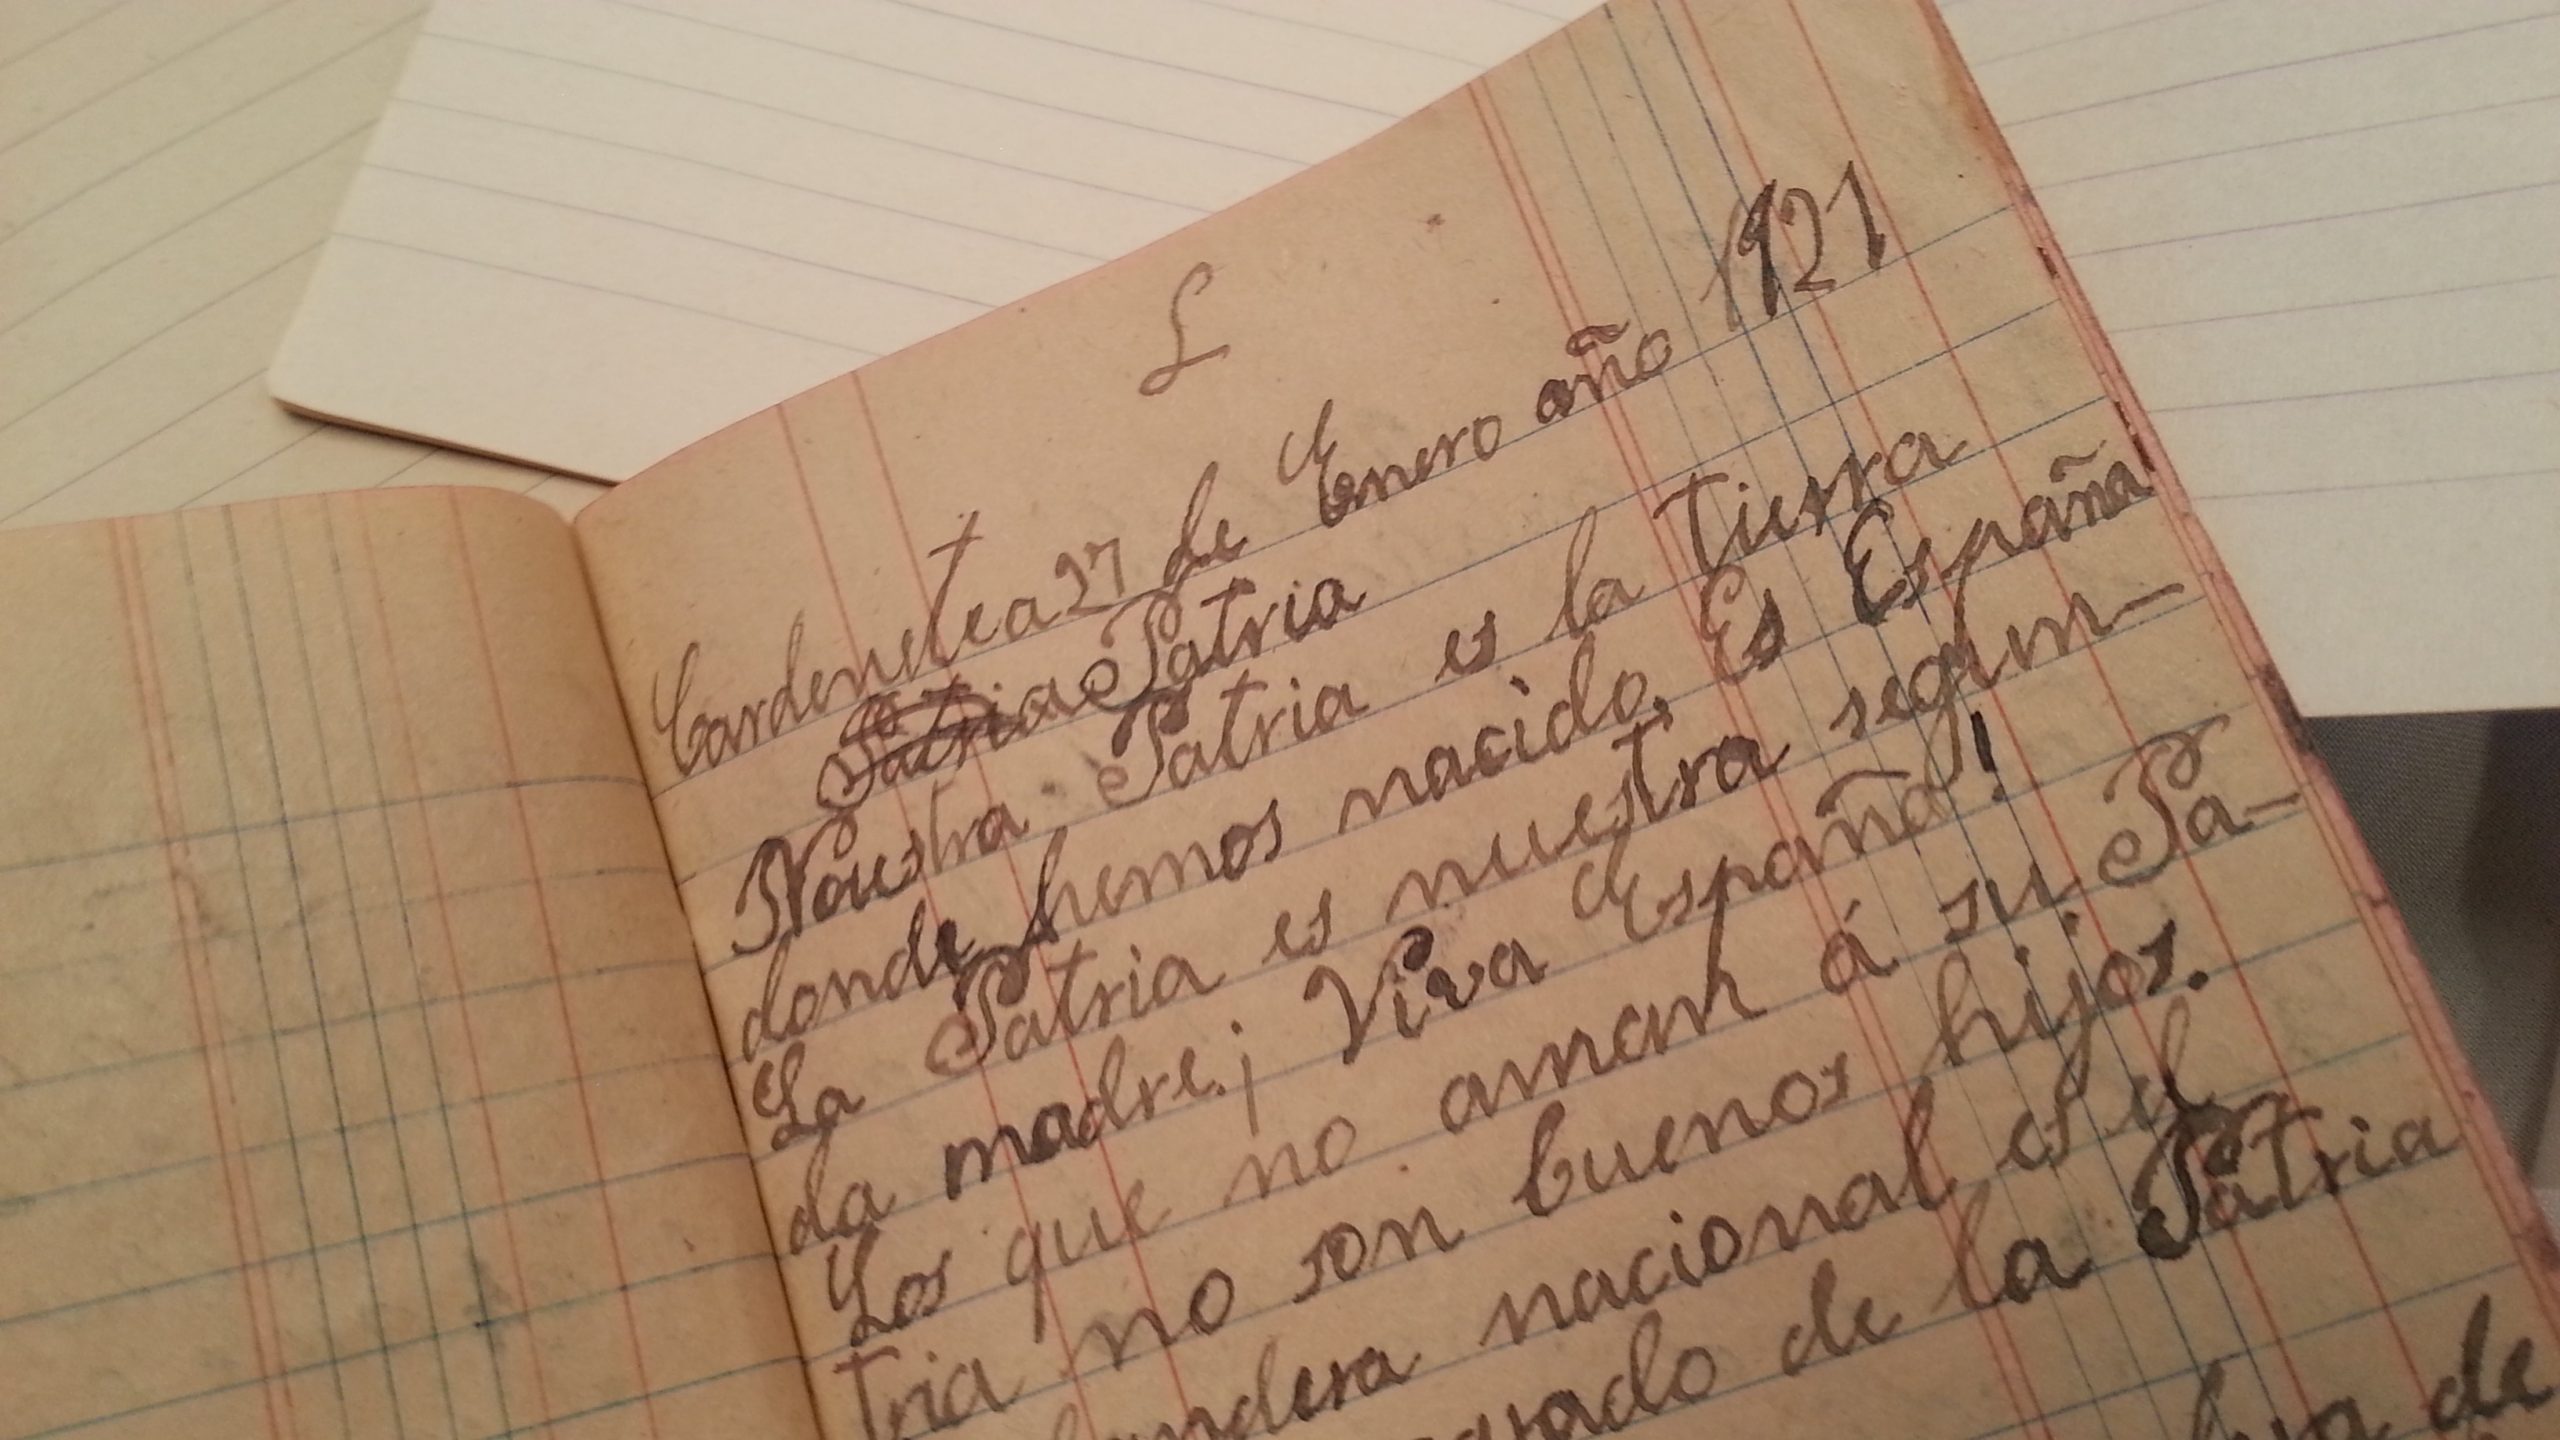 L
Cardenete a 27 de Enero año 1921
Patria Patria
Nuestra Patria es la tierra
donde hemos nacido. Es España
La Patria es nuestra segun-
da madre. ¡Viva España!
Los que no aman á su Pa-
tria no son buenos hijos.
bandera nacional es el
de la Patria
de